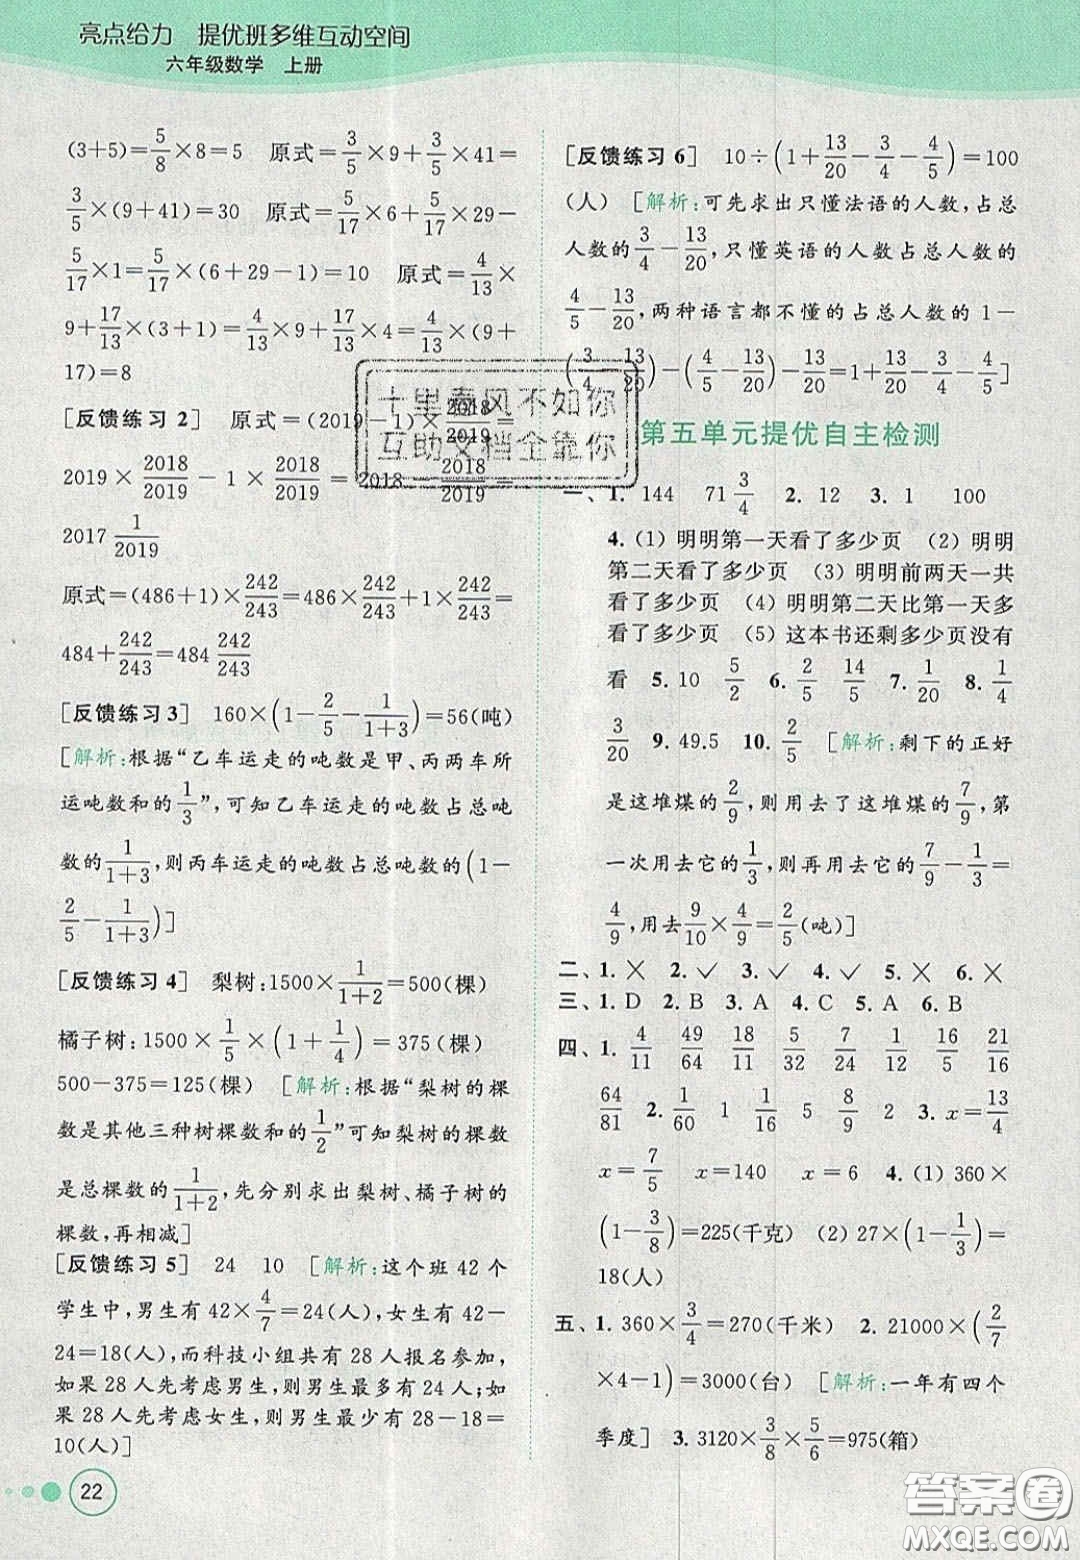 亮点给力 提优班多维互动空间
六年级数学 上册
(3+5)=5/8×8=5 原式=3/5×9+3/5×41=
3/5×(9+41)=30 原式=5/17×6+5/17×29-
5/17×1=5/17×(6+29-1)=10 原式=4/13×
9+17/13×(3+1)=4/13×9+17/13×4=4/13×(9+
17)=8
[反馈练习 2] 原式=(2019-1)×2018/2019=
2019×2018/2019-1×2018/2019=2018-2018/2019=
2017 1/2019
原式=(486+1)×242/243=486×242/243+1×242/243=
484+242/243=484 242/243
[反馈练习 3] 160×(1-2/5-1/(1+3))=56(吨)
[解析:根据“乙车运走的吨数是甲、丙两车所
运吨数和的1/3”,可知乙车运走的吨数占总吨
数的1/(1+3),则丙车运走的吨数占总吨数的(1-
2/5-1/(1+3))]
[反馈练习 4] 梨树:1500×1/(1+2)=500(棵)
橘子树:1500×1/5×(1+1/4)=375(棵)
500-375=125(棵) [解析:根据“梨树的棵
数是其他三种树棵数和的1/2”可知梨树的棵数
是总棵数的1/(1+2),先分别求出梨树、橘子树的
棵数,再相减]
[反馈练习 5] 24 10 [解析:这个班 42 个
学生中,男生有 42×4/7=24(人),女生有 42-
24=18(人),而科技小组共有 28 人报名参加,
如果 28 人先考虑男生,则男生最多有 24 人;如
果 28 人先考虑女生,则男生最少有 28-18=
10(人)]
22
[反馈练习 6] 10÷(1+13/20-3/4-4/5)=100
(人) [解析:可先求出只懂法语的人数,占总
人数的3/4-13/20,只懂英语的人数占总人数的
4/5-13/20,两种语言都不懂的占总人数的 1-
(3/4-13/20)-(4/5-13/20)-13/20=1+13/20-3/4-4/5]
十里春风不如你
互助文档全靠你
第五单元提优自主检测
一、1. 144 71 3/4 2. 12 3. 1 100
4. (1) 明明第一天看了多少页 (2) 明明
第二天看了多少页 (3) 明明前两天一共
看了多少页 (4) 明明第二天比第一天多
看了多少页 (5) 这本书还剩多少页没有
看 5. 10 5/2 6. 2/5 14/5 7. 1/20 8. 1/4
3/20 9. 49.5 10. 2/5 [解析:剩下的正好
是这堆煤的2/9,则用去了这堆煤的7/9,第
一次用去它的1/3,则再用去它的7/9-1/3=
4/9,用去9/10×4/9=2/5(吨)]
二、1. ✕ 2. ✓ 3. ✓ 4. ✓ 5. ✕ 6. ✕
三、1. D 2. B 3. A 4. C 5. A 6. B
四、1. 4/11 49/64 18/11 5/32 7/24 1/12 16/5 21/16
64/81 2. 1/60 1 1/16 5 8/9 2 3. x=13/4
x=7/5 x=140 x=6 4. (1) 360×
(1-3/8)=225(千克) (2) 27×(1-1/3)=
18(人)
五、1. 360×3/4=270(千米) 2. 21000×(2/7
×4-1)=3000(台) [解析:一年有四个
季度] 3. 3120×3/8×5/6=975(箱)
答案圈
MXQE.COM